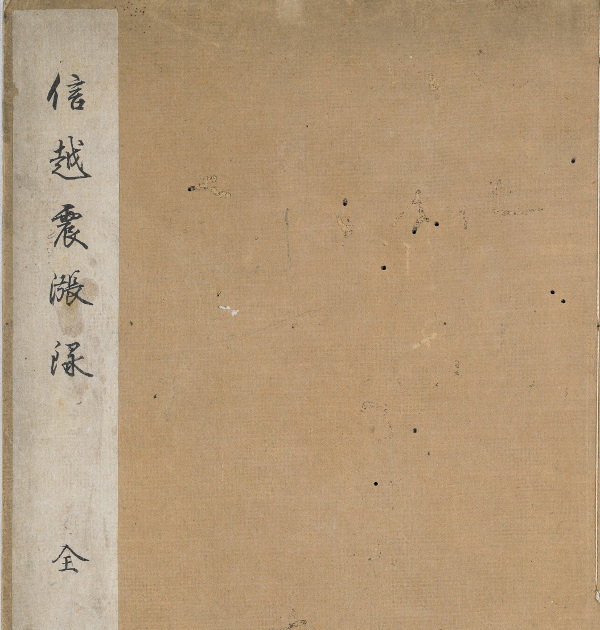 信越震漲録 全